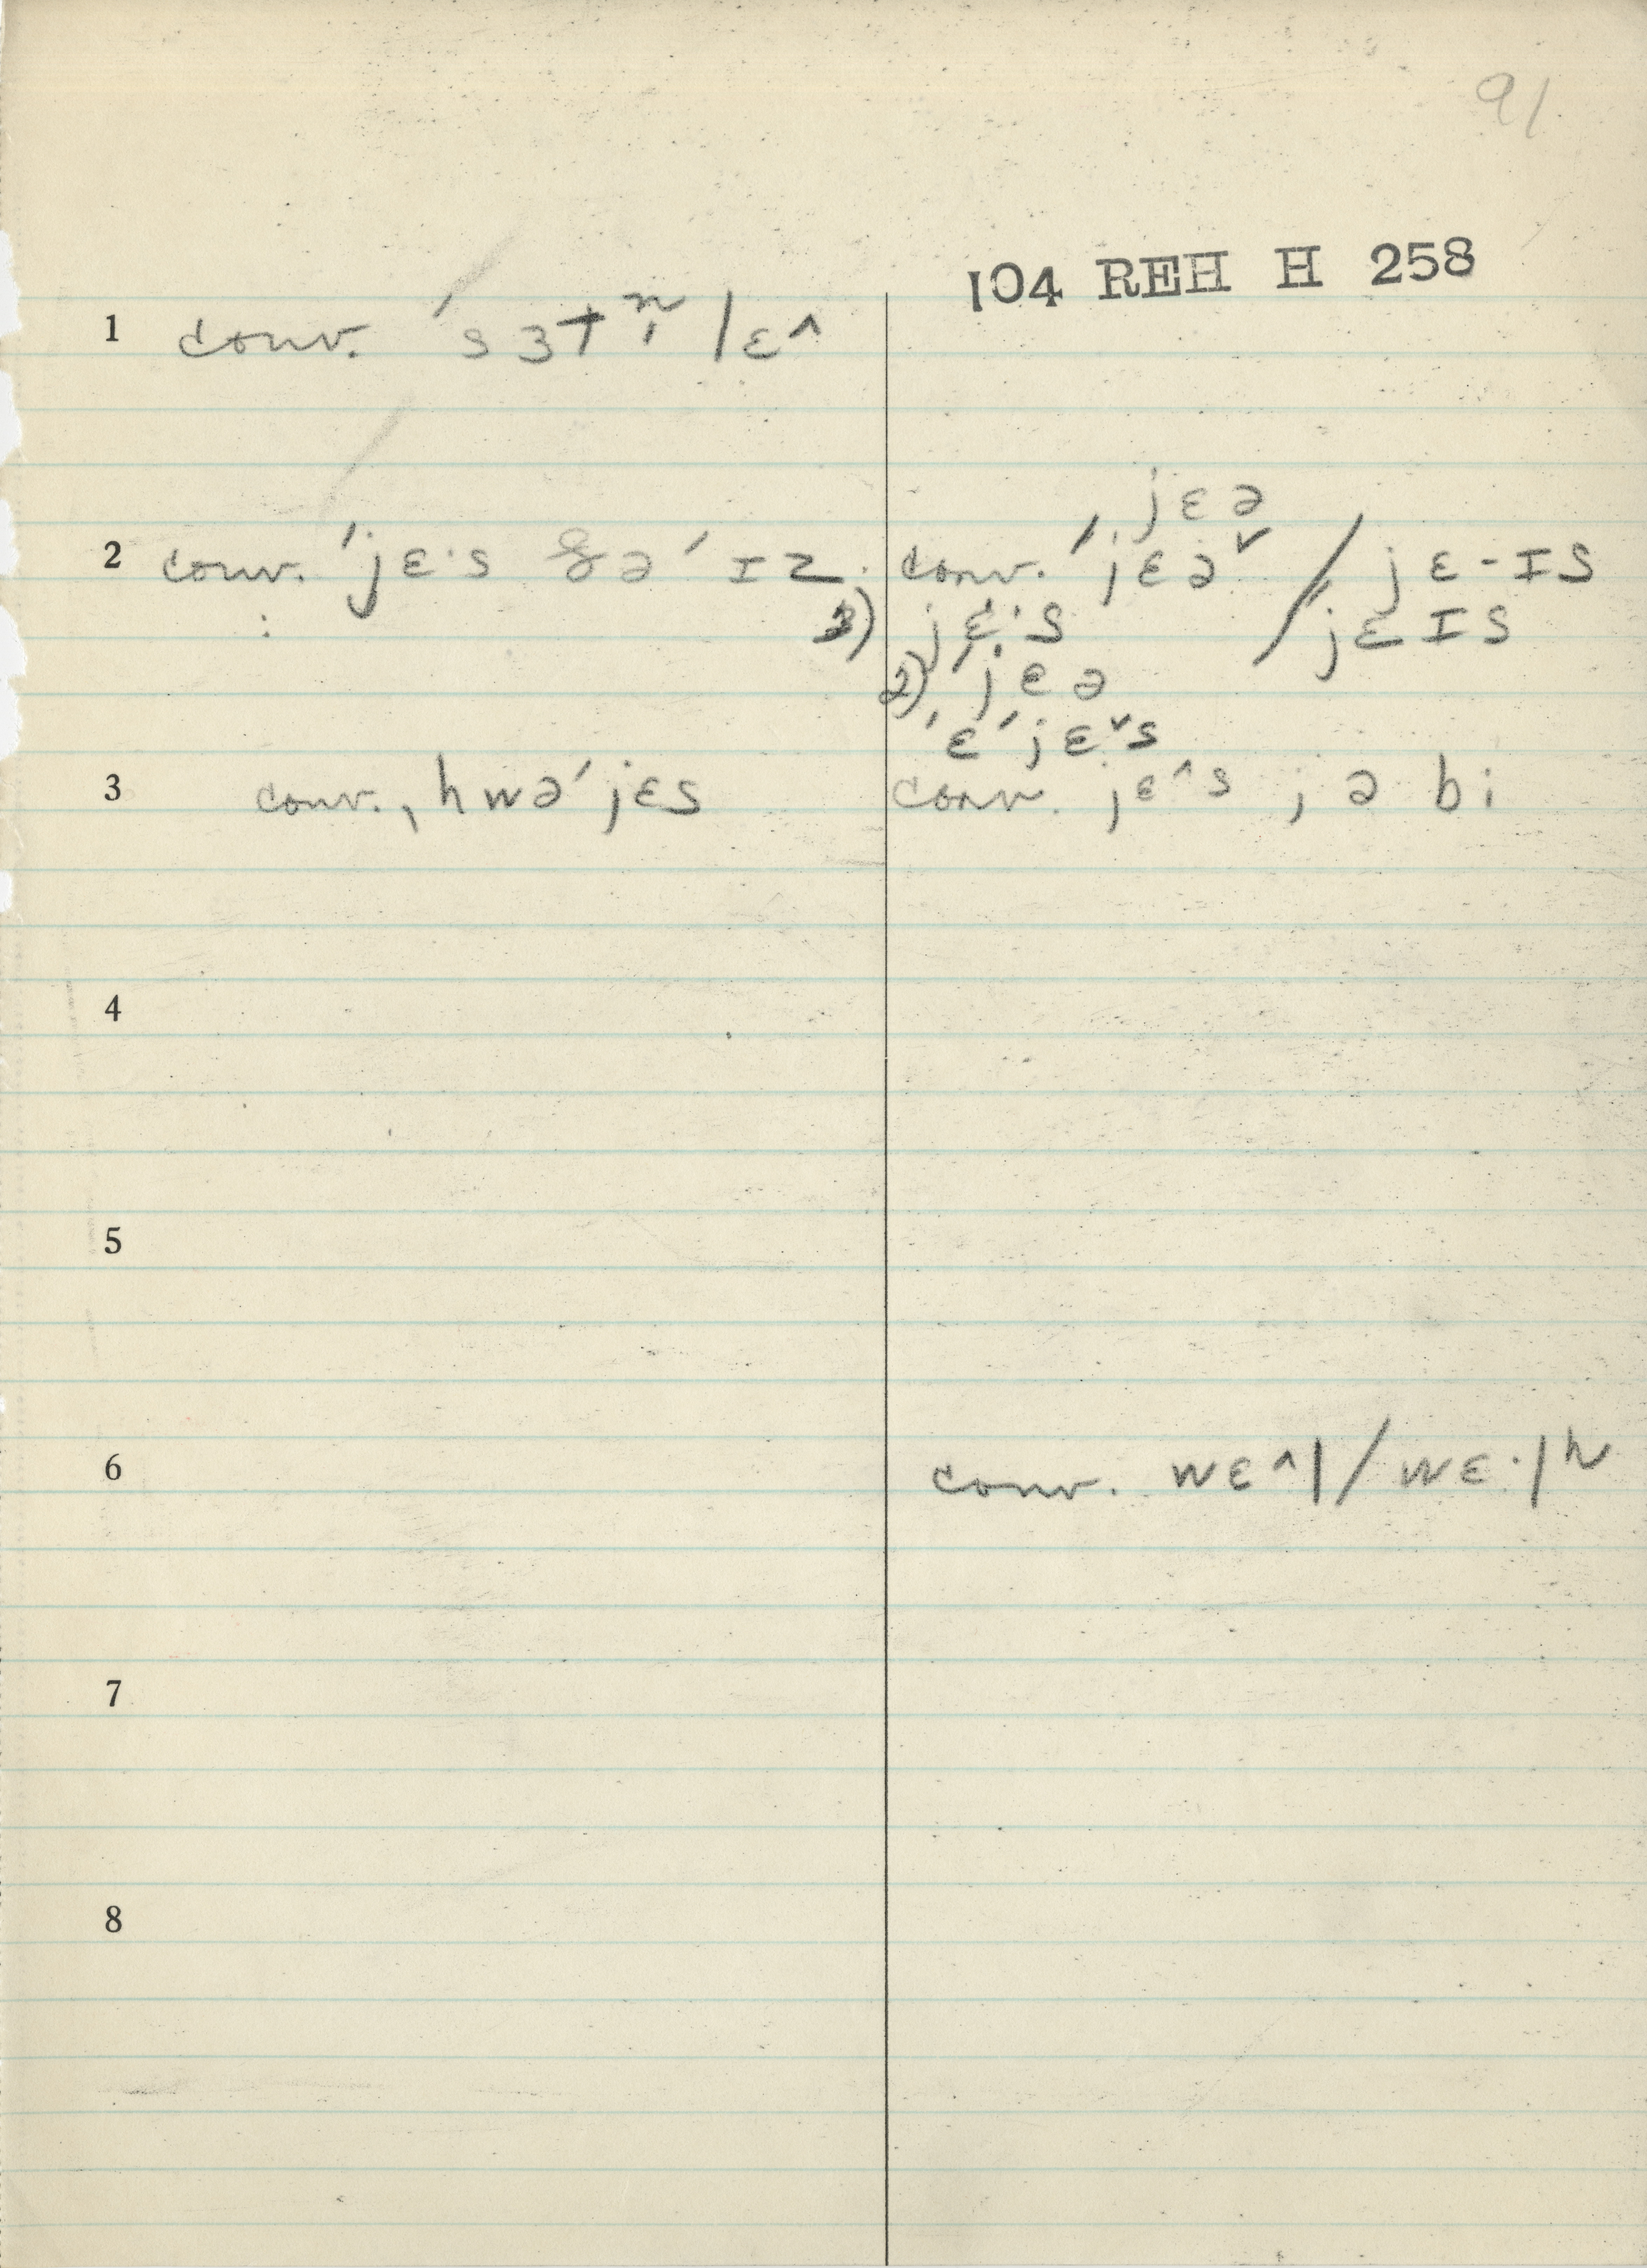 91
104 REH H 258
1 conv. ˈsɜtn̩lɛ^
jɛə
2 conv. ˈjɛ·s ðəˈɪz. conv. ˈjɛə˅ / jɛ-ɪs
3) jɛ·s / jɛɪs
2) ˈjɛə
ˈɛˈjɛ˅s
3 conv. ˌhwəˈjɛs conv. jɛ^s ; ə bi
4
5
6 conv. wɛ^l / wɛ·lʰ
7
8